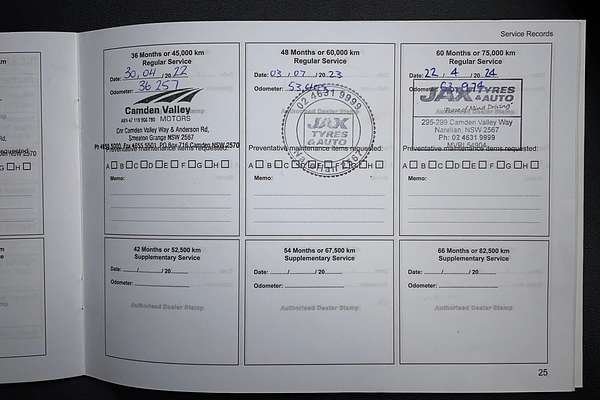 Service Records
36 Months or 45,000 km
Regular Service
Date: 30, 04 / 20 22
Odometer: 36 257
Camden Valley
MOTORS
Cnr Camden Valley Way & Anderson Rd,
Smeaton Grange NSW 2567
Preventative maintenance items requested:
A B C D E F G H
Memo:
48 Months or 60,000 km
Regular Service
Date: 03, 07 / 20 23
Odometer:
02 4631 9999
JAX
TYRES
& AUTO
Narellan 2567
Preventative maintenance items requested:
A B C D E F G H
Memo:
60 Months or 75,000 km
Regular Service
Date: 22 / 4 / 20 24
Odometer:
JAX TYRES
& AUTO
295-299 Camden Valley Way
Narellan, NSW 2567
Ph: 02 4631 9999
MVRL 54904
Preventative maintenance items requested:
A B C D E F G H
Memo:
42 Months or 52,500 km
Supplementary Service
Date: / / 20
Odometer:
Authorised Dealer Stamp
54 Months or 67,500 km
Supplementary Service
Date: / / 20
Odometer:
Authorised Dealer Stamp
66 Months or 82,500 km
Supplementary Service
Date: / / 20
Odometer:
Authorised Dealer Stamp
25